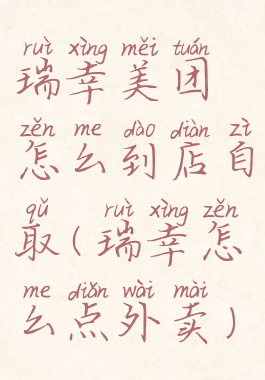 ruì xìng měi tuán
瑞幸美团
zěn me dào diàn zì
怎么到店自
qǔ ruì xìng zěn
取(瑞幸怎
me diǎn wài mài
么点外卖)